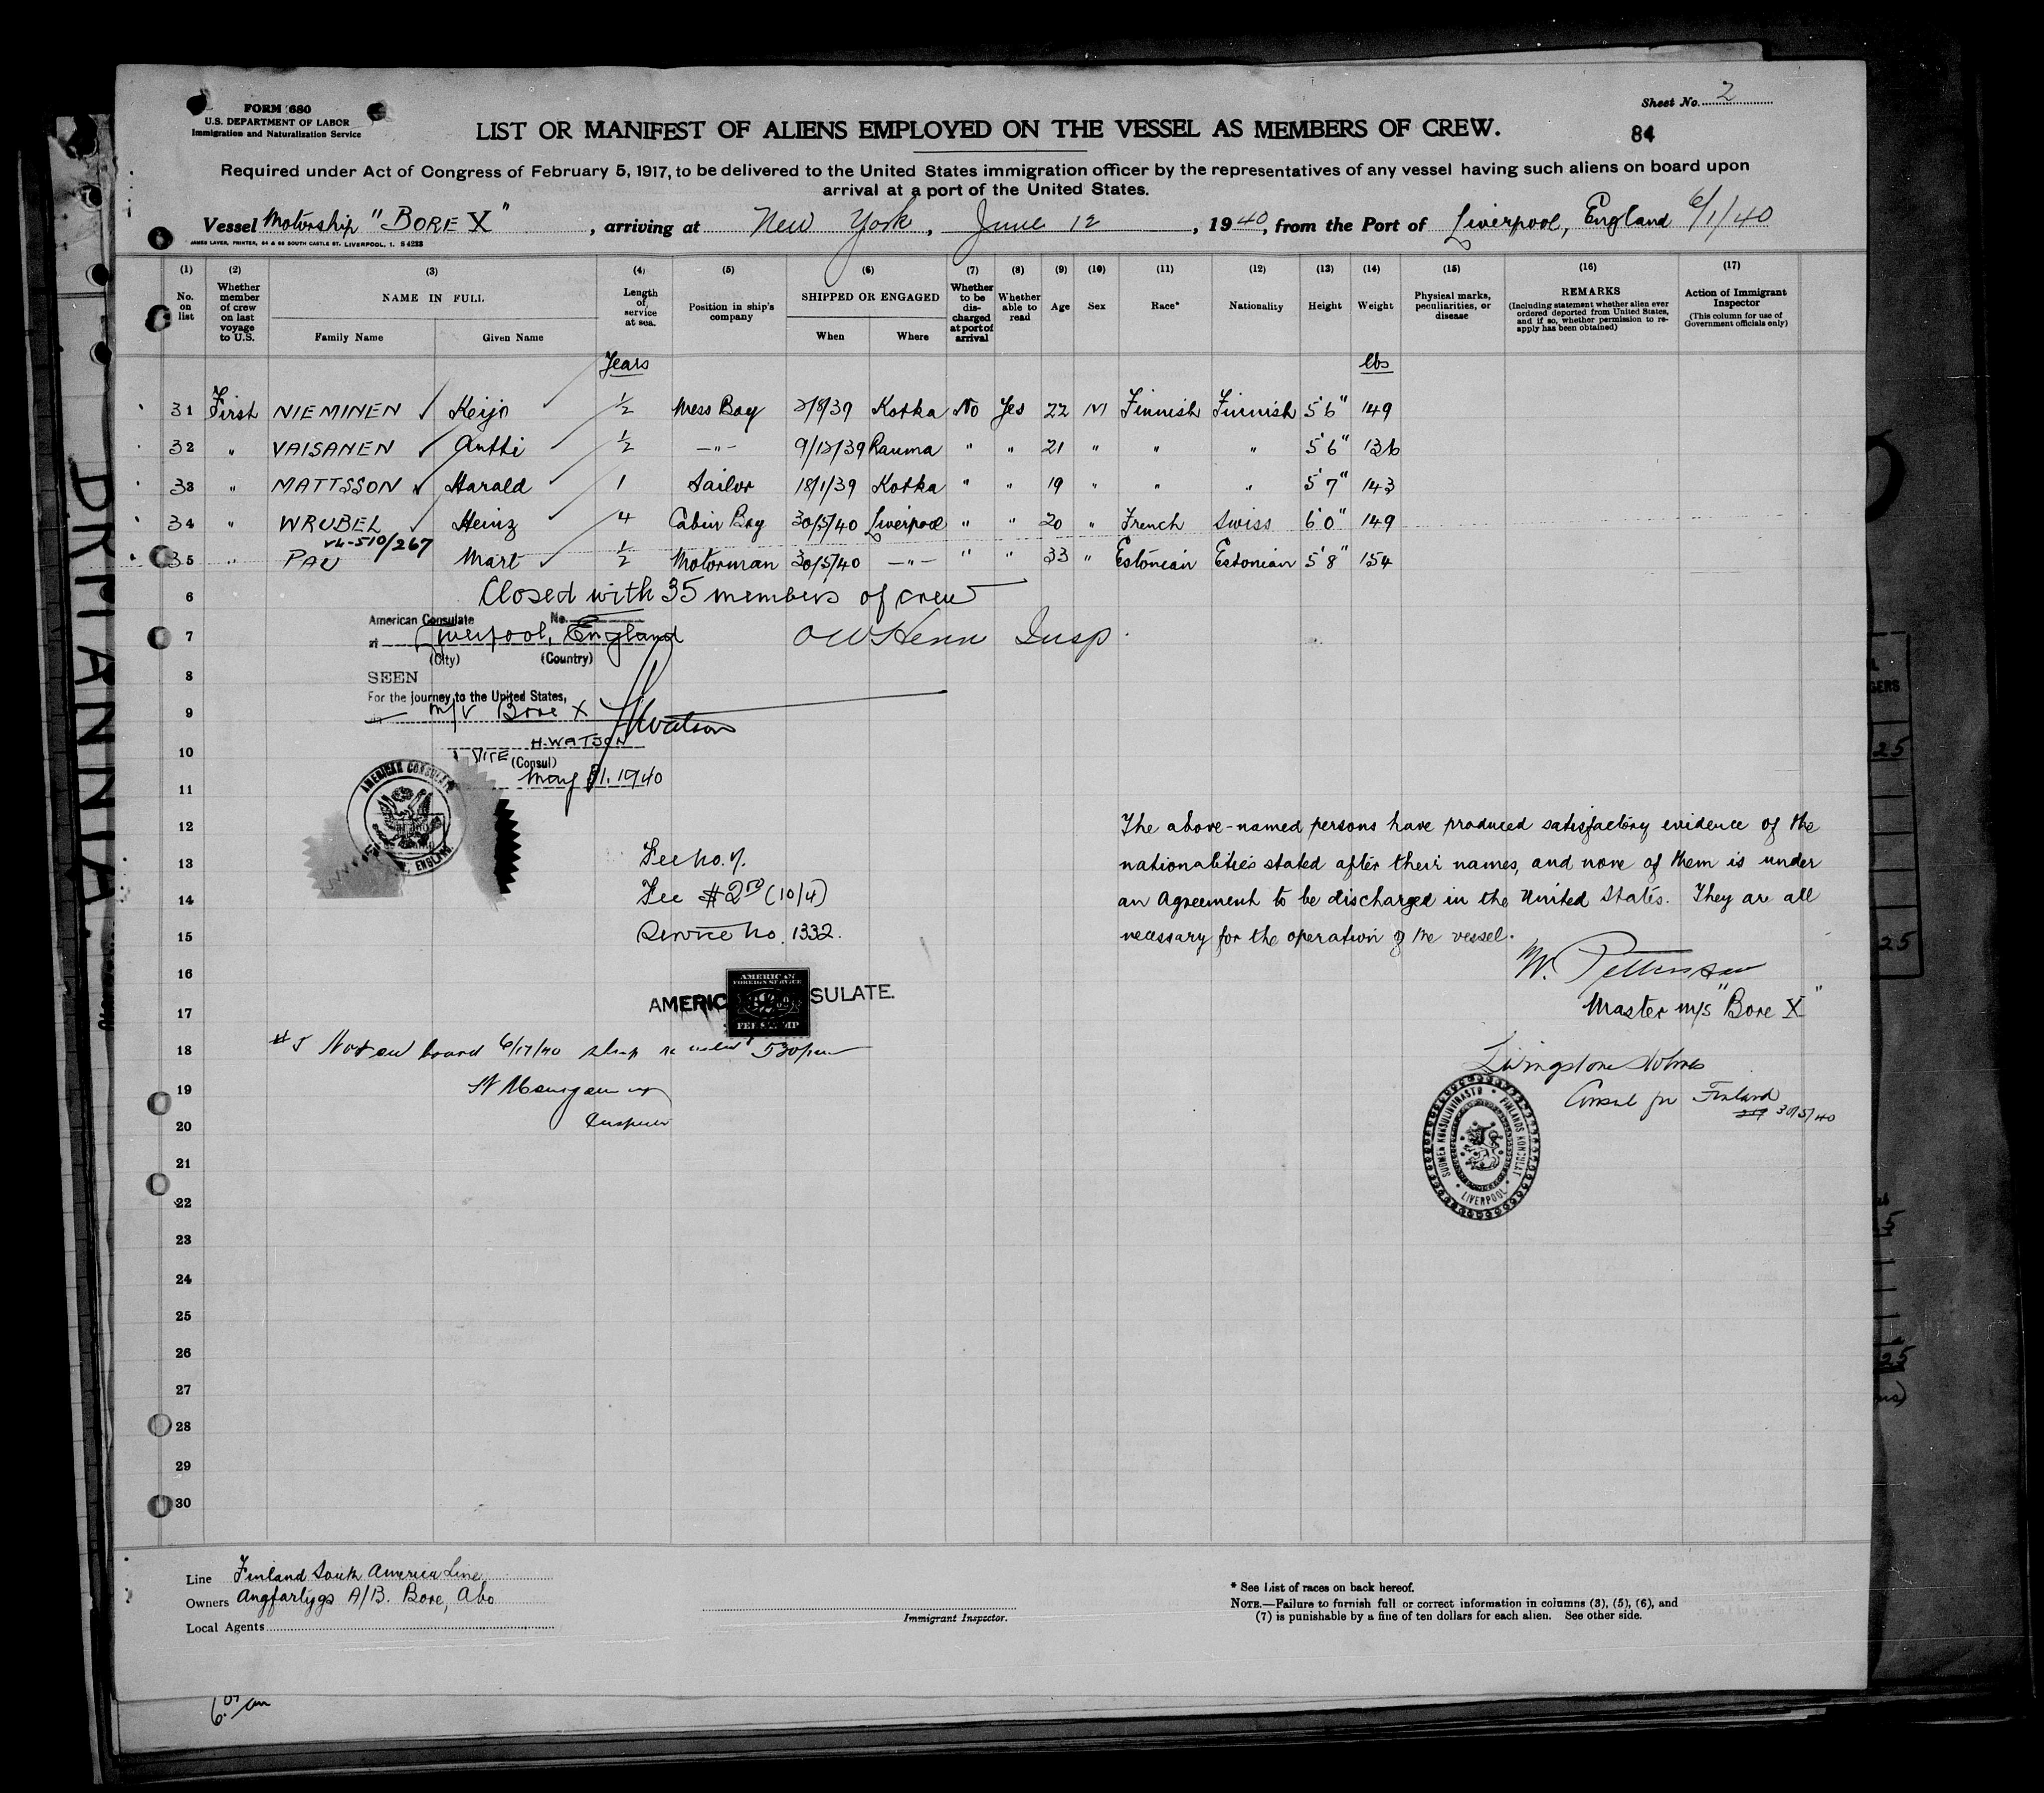 FORM 680
U.S. DEPARTMENT OF LABOR
Immigration and Naturalization Service
Sheet No. 2
84
LIST OR MANIFEST OF ALIENS EMPLOYED ON THE VESSEL AS MEMBERS OF CREW.
Required under Act of Congress of February 5, 1917, to be delivered to the United States immigration officer by the representatives of any vessel having such aliens on board upon
arrival at a port of the United States.
Vessel Motorship "BORE X", arriving at New York, June 12, 1940, from the Port of Liverpool, England 6/1/40
JAMES LAVER, PRINTER, 64 & 66 SOUTH CASTLE ST. LIVERPOOL, 1. S4223
(1) (2) (3) (4) (5) (6) (7) (8) (9) (10) (11) (12) (13) (14) (15) (16) (17)
No. on list
Whether member of crew on last voyage to U.S.
NAME IN FULL
Family Name Given Name
Length of service at sea.
Position in ship's company
SHIPPED OR ENGAGED
When Where
Whether to be discharged at port of arrival
Whether able to read
Age Sex Race* Nationality Height Weight
Physical marks, peculiarities, or disease
REMARKS
(Including statement whether alien ever ordered deported from United States, and if so, whether permission to re-apply has been obtained)
Action of Immigrant Inspector
(This column for use of Government officials only)
Years lbs
31 First NIEMINEN Keijo ½ Mess Boy /8/39 Kotka No Yes 22 M Finnish Finnish 5'6" 149
32 " VAISANEN Antti ½ —"— 9/12/39 Rauma " " 21 " " " 5'6" 136
33 " MATTSSON Harald 1 Sailor 18/1/39 Kotka " " 19 " " " 5'7" 143
34 " WRUBEL Heinz 4 Cabin Boy 30/5/40 Liverpool " " 20 " French Swiss 6'0" 149
-510/267
35 " PAU Mart ½ Motorman 30/5/40 —"— " " 33 " Estonian Estonian 5'8" 154
6 Closed with 35 members of crew
American Consulate No.
7 at Liverpool, England Insp.
(City) (Country)
8 SEEN
For the journey to the United States,
9 M/V Bore X HWatson
H. WATSON
10 VICE (Consul)
11 May 31. 1940
AMERICAN CONSULATE
ENGLAND.
12 The above-named persons have produced satisfactory evidence of the
13 Fee No. 7. nationalities stated after their names, and none of them is under
14 Fee $2.00 (10/4) an Agreement to be discharged in the United States. They are all
15 Service No. 1332. necessary for the operation of the vessel.
16
AMERICAN
FOREIGN SERVICE
FEE STAMP
17 AMERIC SULATE.
Master m/s "Bore X"
18 #5 Not on board 6/17/40 ship 530pm
19
Livingstone Holmes
Consul for Finland
30/5/40
20
SUOMEN KONSULINVIRASTO • FINLANDS KONSULAT
LIVERPOOL
21
22
23
24
25
26
27
28
29
30
Line Finland South America Line
Owners Angfartygs A/B. Bore, Abo
Local Agents
Immigrant Inspector.
* See List of races on back hereof.
NOTE.—Failure to furnish full or correct information in columns (3), (5), (6), and
(7) is punishable by a fine of ten dollars for each alien. See other side.